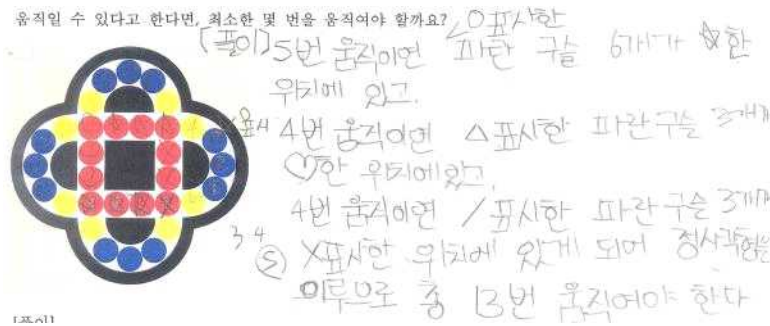 움직일 수 있다고 한다면, 최소한 몇 번을 움직여야 할까요?
○표시한
[풀이] 5번 움직이면 파란 구슬 6개가 ☆한
위치에 있고.
표시 4번 움직이면 △표시한 파란구슬 3개가
♡한 위치에있고,
4번 움직이면 /표시한 파란구슬 3개가
3 4
⑤ X표시한 위치에 있게 되어 정사각형을
이루므로 총 13번 움직여야 한다
[풀이]